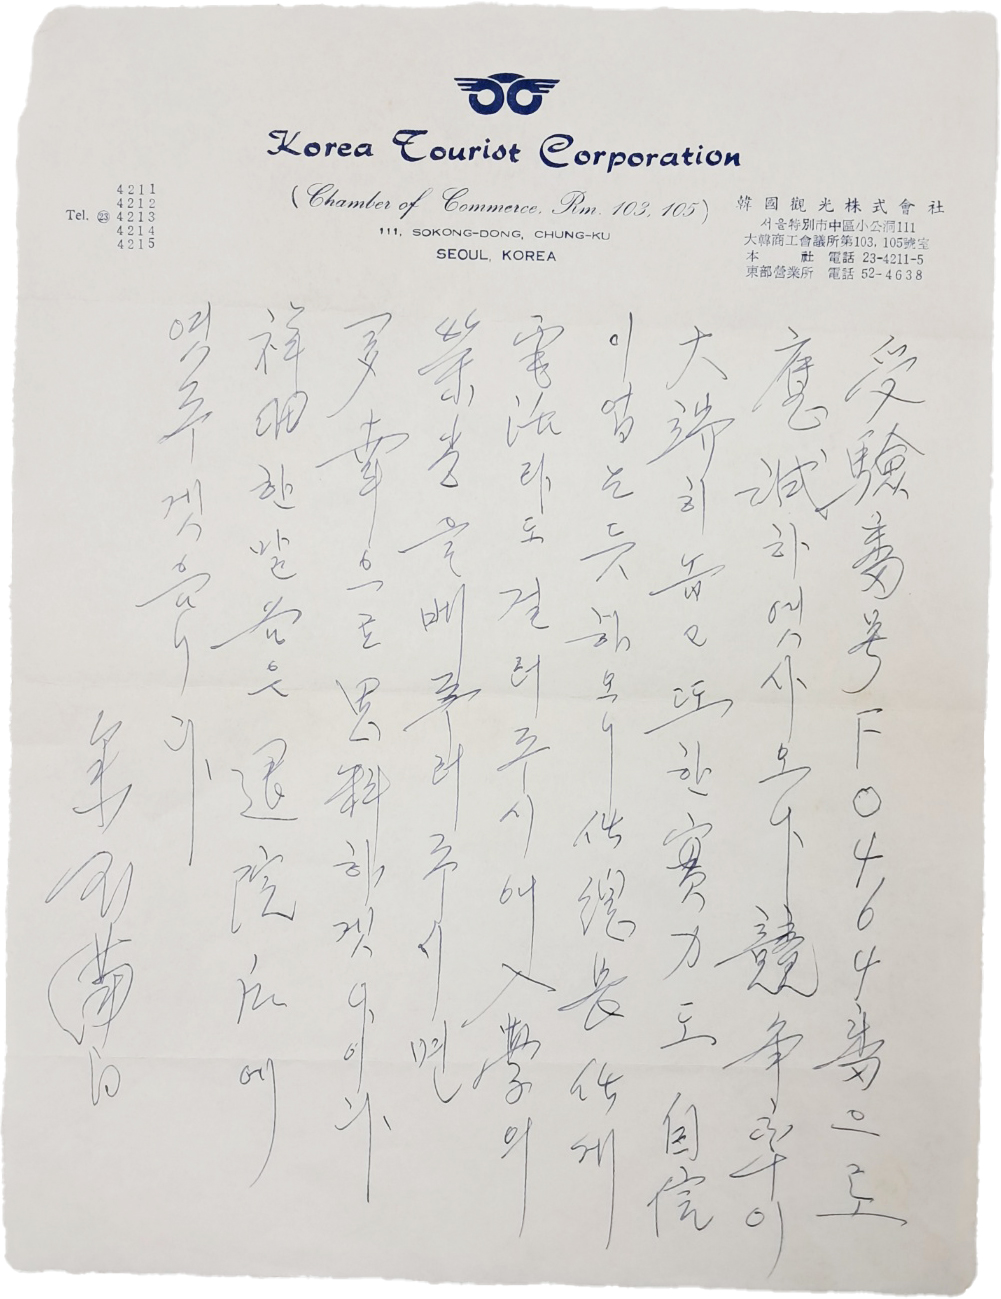 Korea Tourist Corporation
(Chamber of Commerce, Rm. 103, 105)
111, SOKONG-DONG, CHUNG-KU
SEOUL, KOREA
Tel. ㉓ 4211
4212
4213
4214
4215
韓國觀光株式會社
서울特別市中區小公洞111
大韓商工會議所第103, 105號室
本 社 電話 23-4211-5
東部營業所 電話 52-4638
受驗番号 F04644番으로
應試하엿사오니 競争率이
大端히 높고 또한 實力도 自信
이 없는듯 해오니 總長 게
電話라도 걸러주시여 入學의
榮光을 베푸러주시면
多幸으로 思料하겟나이다
祥細한 말슴은 退院后에
엿주겟음니다
白